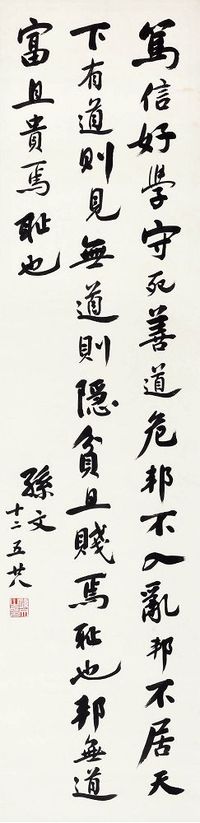 篤信好學守死善道危邦不入亂邦不居天
下有道則見無道則隱貧且賤焉耻也邦無道
富且貴焉耻也
孫文
十二五廿八